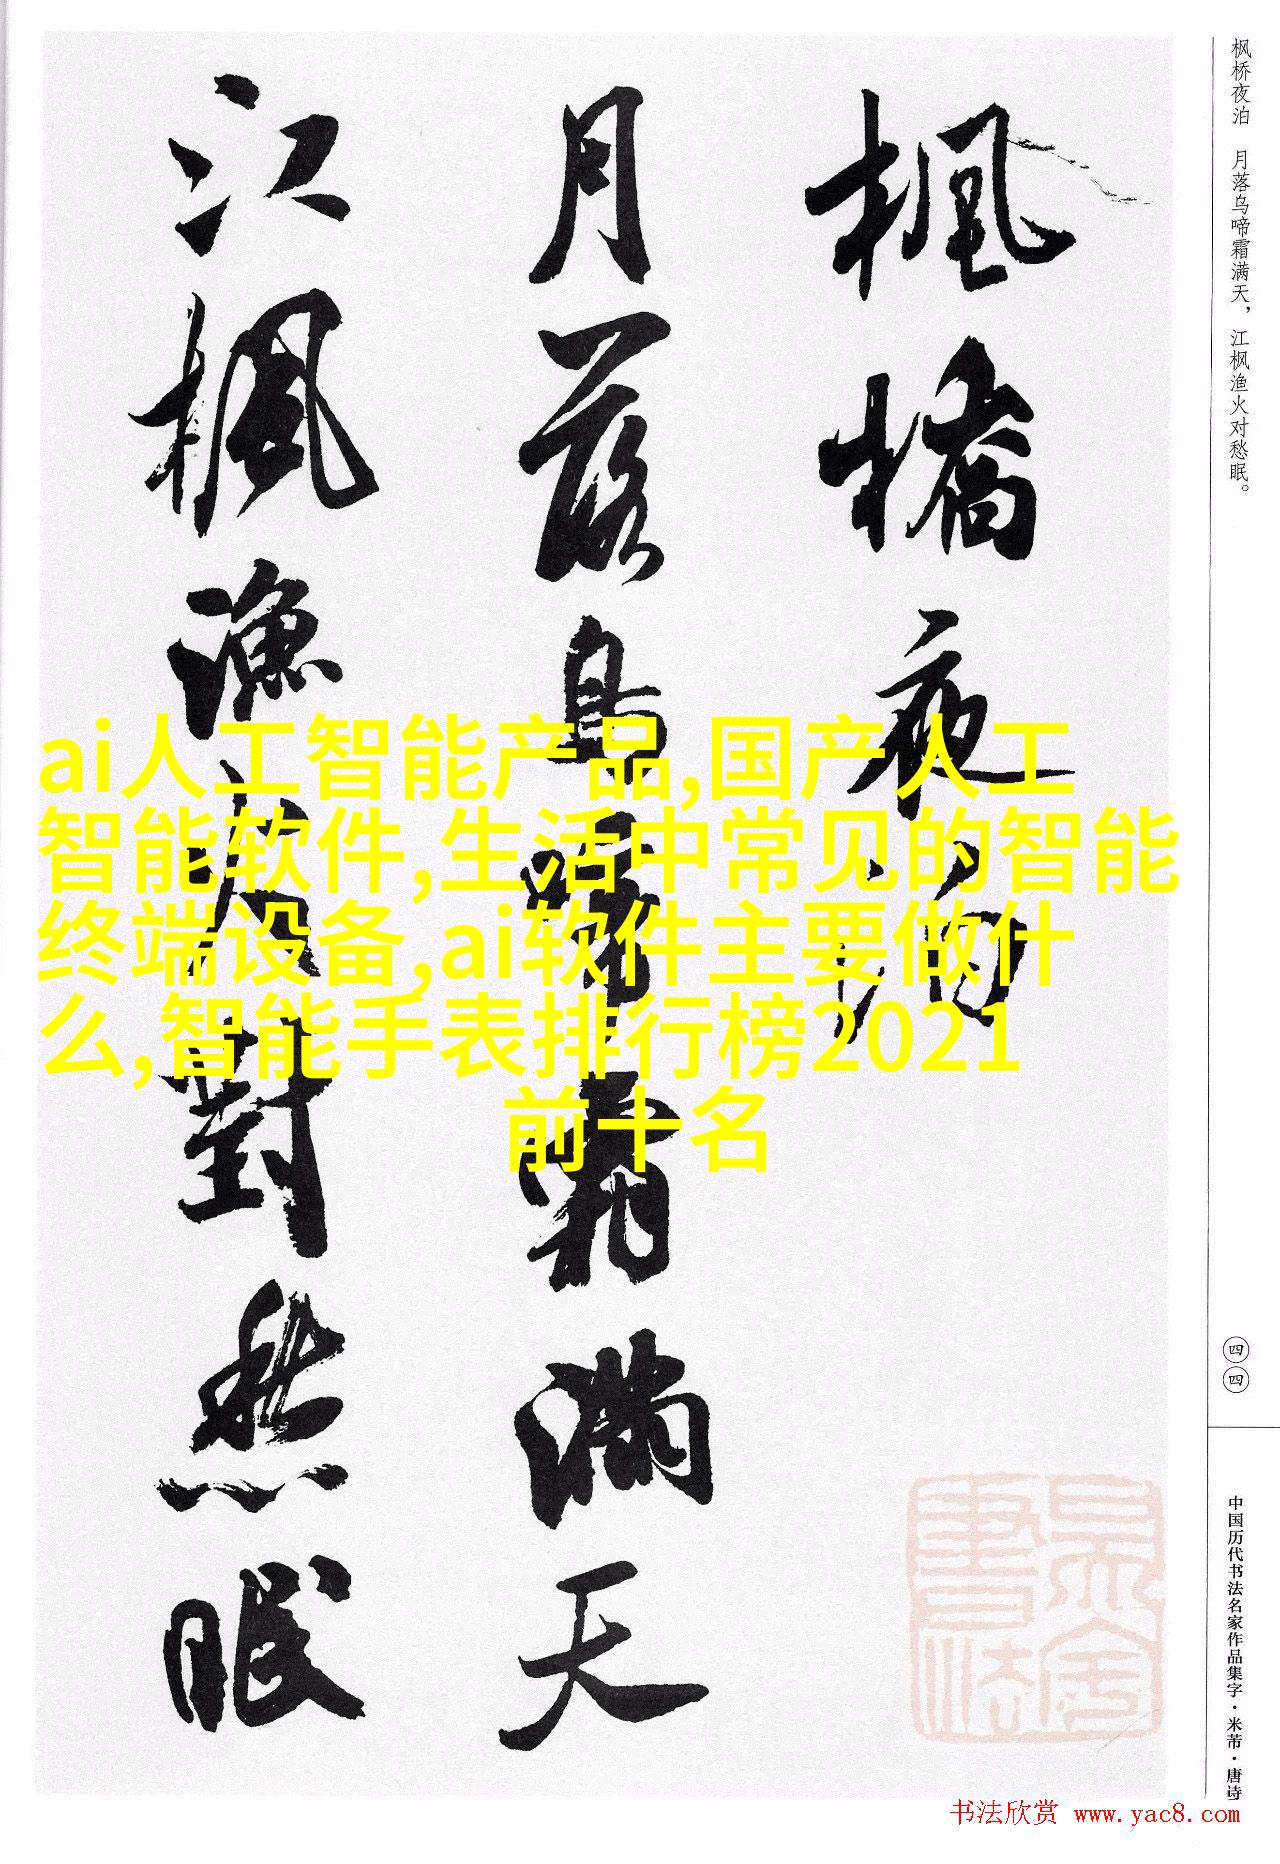 枫桥夜泊 月落乌啼霜满天，江枫渔火对愁眠。
楓橋夜泊
月落烏啼霜滿天
江楓漁火對愁眠
ai人工智能产品,国产人工
智能软件,生活中常见的智能
终端设备,ai软件主要做什
么,智能手表排行榜2021
前十名
四四
中国历代书法名家作品集字·米芾·唐诗
书法欣赏 www.yac8.com